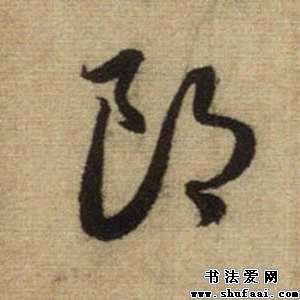 郎
书法爱网
www.shufaai.com